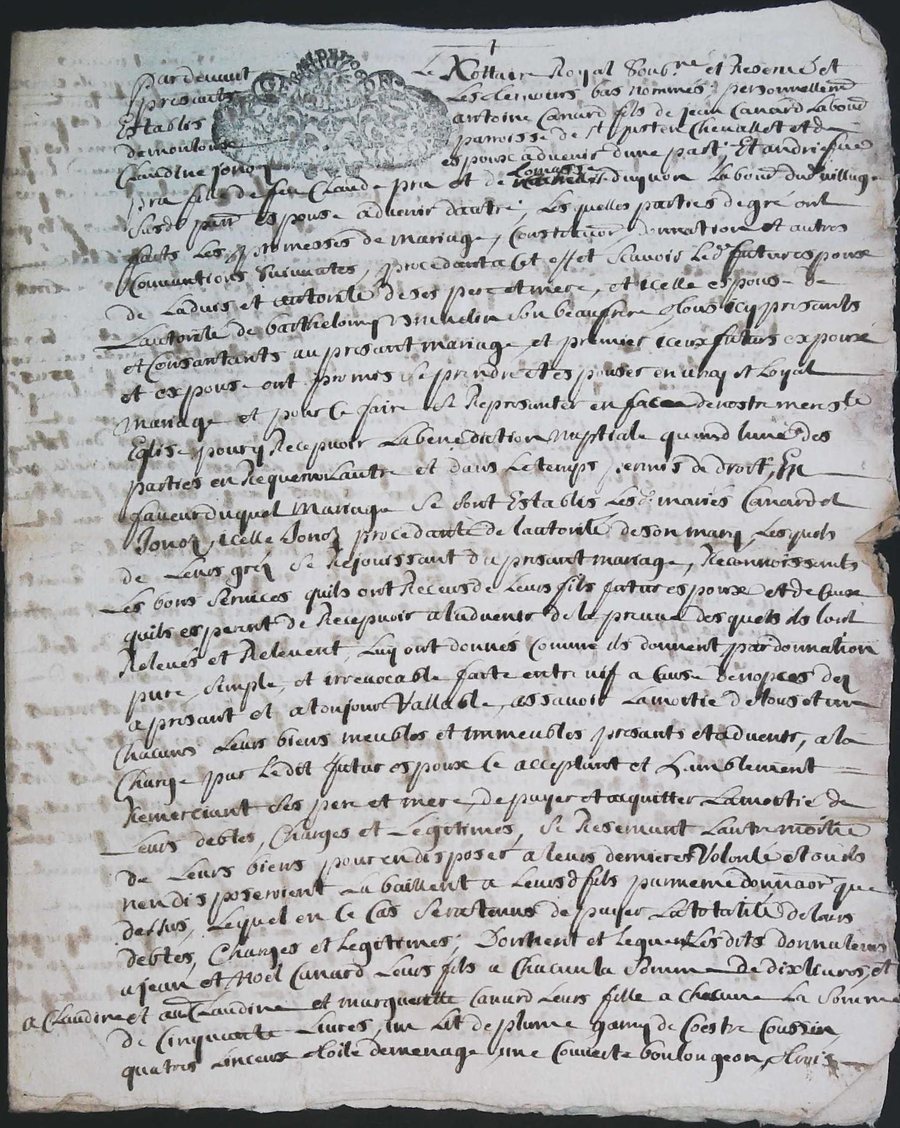 Pardevant Le Nottaire Royal Soubz.né et Reservé et
presants Les tesmoins bas nommés personnellem
Establis antoine Canard fils de jean Canard Labour
de moulouse parroisse de St justen Chevallet et de
Claudine jonon espoux advenir dune part, Et andrie fue
pra fille de feu Claude pra et de Lomasse duyvon Labour dud village
susd part espouse advenir dautre, Lesquelles parties de gré ont
faits Les promesses de mariage, Constitution donnation et autres
Conventions suivantes, procedant a Cet effet scavoir Led futur espoux
de Ladvis et authorité de ses pere et mere, et icelle espouse de
Lautorité de barthelemy son beaufrere tous icy presants
et Consantants au presant mariage, et premier iceux futurs espoux
et espouse ont promis se prendre et espouser en vray et Loyal
mariage et pour Ce faire se Representer en face de nostre mere ste
Eglise pour y Recepvoir La benediction nuptiale quand lune des
parties en Requerra Lautre et dans Le temps permis de droit, En
faveur duquel mariage se sont Establis Lesd mariés Canard et
Jonon, icelle Jonon procedante de lautorité de son mary Lesquels
de Leurs gréz se Rejouissant du presant mariage, Reconnoissants
Les bons services quils ont Receus de Leurs fils futur espoux et de Ceux
quils esperent de Recepvoir a Ladvenir de la preuve desquels ils lont
Relevés et Relevent, Luy ont donnés Comme ils donnent par donnation
pure, simple, et irrevocable faite entre vif a Cause de nopces dez
a presant et a toujour Vallable, assavoir La moitié de tous et un
Chacuns Leurs biens meubles et immeubles presants et advenir, a la
Charge par Le dit futur espoux Ce acceptant et humblement
Remerciant ses pere et mere, de payer et acquitter La moitié de
Leurs debtes, Charges et Legitimes, se Reservant Lautre moitié
de Leurs biens pour en disposer a leurs dernieres Volonté et ou ils
nen disposeroient La baillent a Leursd fils par meme donnaon que
dessus, Lequel en Ce Cas sera tenus de payer La totalité de Leurs
debtes, Charges et Legitimes, Donnent et Leguent Lesdits donnateurs
a jean et Noel Canard Leurs fils a Chacun la somme de dix livres, et
a Claudine et au Claudine et marguerite Canard Leurs fille a Chacune La somme
de Cinquante Livres, un Lit de plume garny de Coestre Coussin,
quatres Linceux toile de menage, une Couverte boulongeon, trois